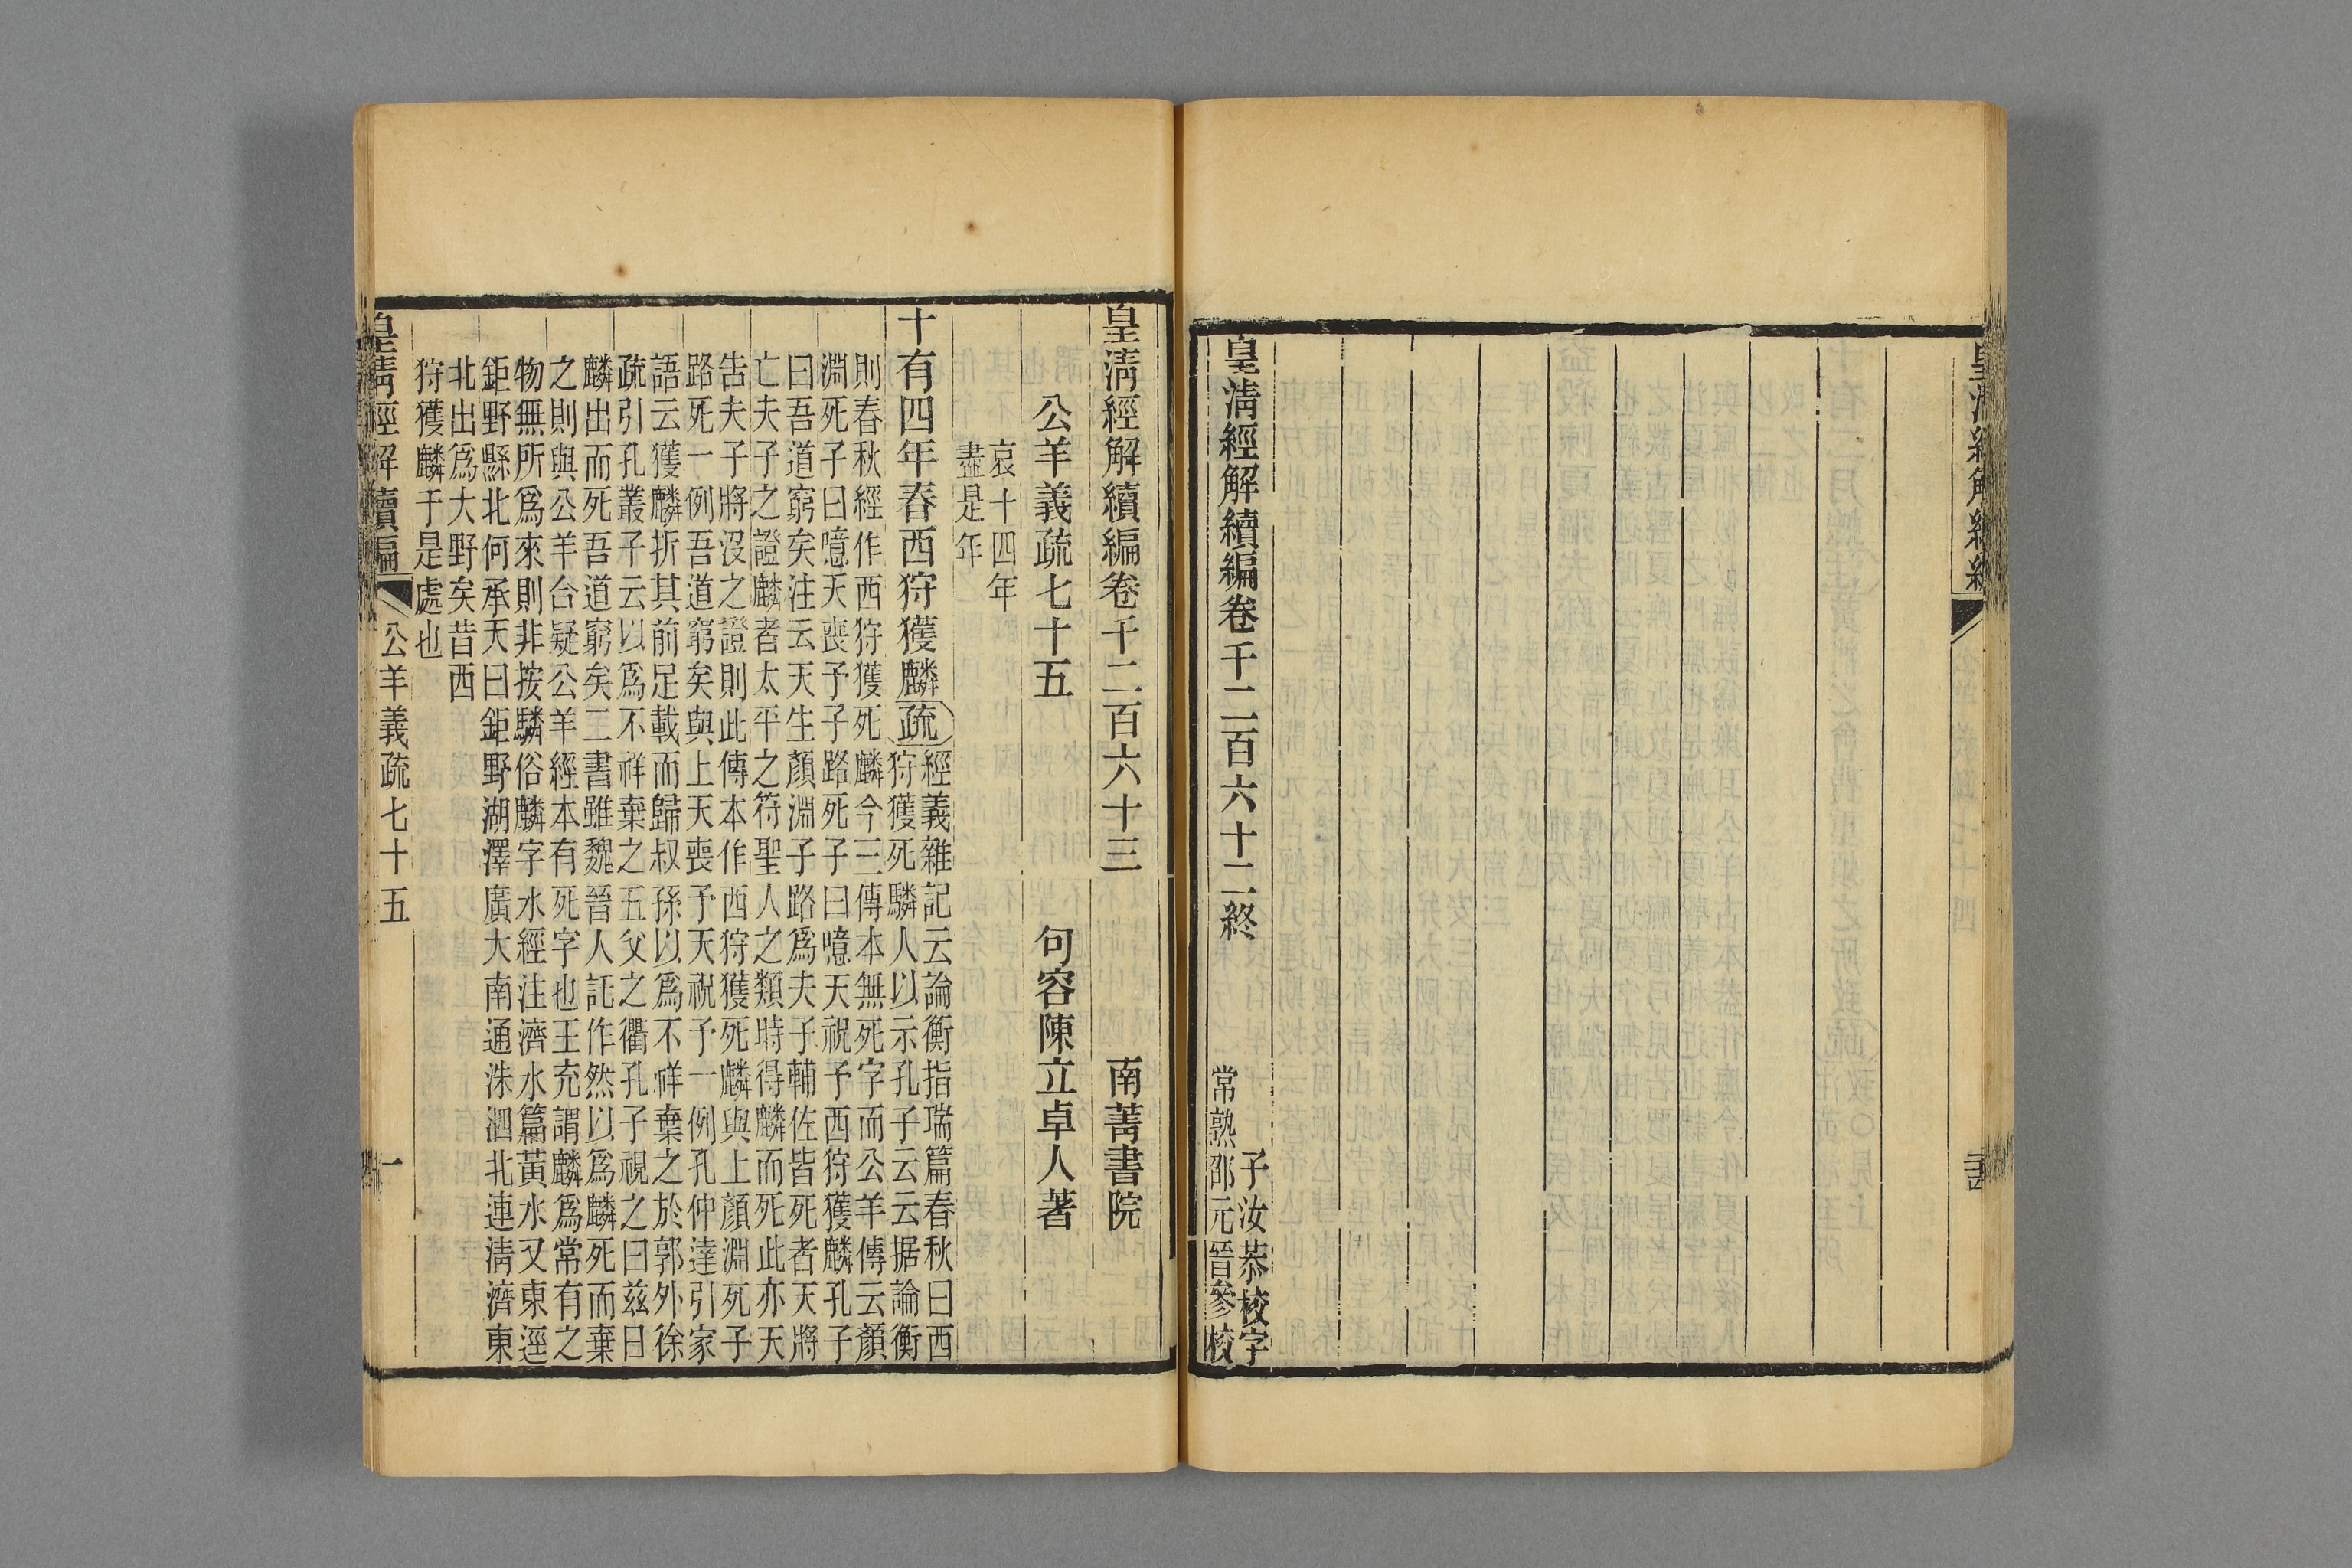 皇清經解續編卷千二百六十二終
子汝恭校字
常熟邵元晉參校
皇清經解續編卷千二百六十三 南菁書院
公羊義疏七十五 句容陳立卓人著
哀十四年
盡是年
十有四年春西狩獲麟疏經義雜記云論衡指瑞篇春秋曰西
狩獲死驎人以示孔子云云据論衡
則春秋經作西狩獲死麟今三傳本無死字而公羊傳云顏
淵死子曰噫天喪予子路死子曰噫天祝予西狩獲麟孔子
曰吾道窮矣注云天生顏淵子路爲夫子輔佐皆死者天將
亡夫子之證麟者太平之符聖人之類時得麟而死此亦天
告夫子將沒之證則此傳本作西狩獲死麟與上顏淵死子
路死一例吾道窮矣與上天喪予天祝予一例孔仲達引家
語云獲麟折其前足載而歸叔孫以爲不祥棄之於郭外徐
疏引孔叢子云以爲不祥棄之五父之衢孔子視之曰茲日
麟出而死吾道窮矣二書雖魏晉人託作然以爲麟死而棄
之則與公羊合疑公羊經本有死字也王充謂麟爲常有之
物無所爲來則非按驎俗麟字水經注濟水篇黃水又東逕
鉅野縣北何承天曰鉅野湖澤廣大南通洙泗北連清濟東
北出爲大野矣昔西
狩獲麟于是處也
皇清經解續編 公羊義疏七十五 一